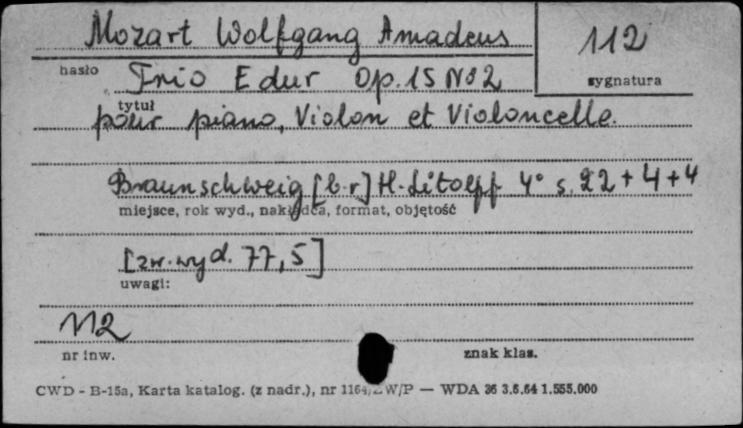 Mozart Wolfgang Amadeus
112
hasło
sygnatura
Trio Edur Op. 15 No 2
tytuł
pour piano, Violon et Violoncelle.
Braunschweig [b.r] H. Litolff 4° s. 22 + 4 + 4
miejsce, rok wyd., nakładca, format, objętość
[zw. wyd. 77,5]
uwagi:
112
nr inw.
znak klas.
CWD - B-15a, Karta katalog. (z nadr.), nr 1164/ZW/P — WDA 36 3.6.64 1.555.000